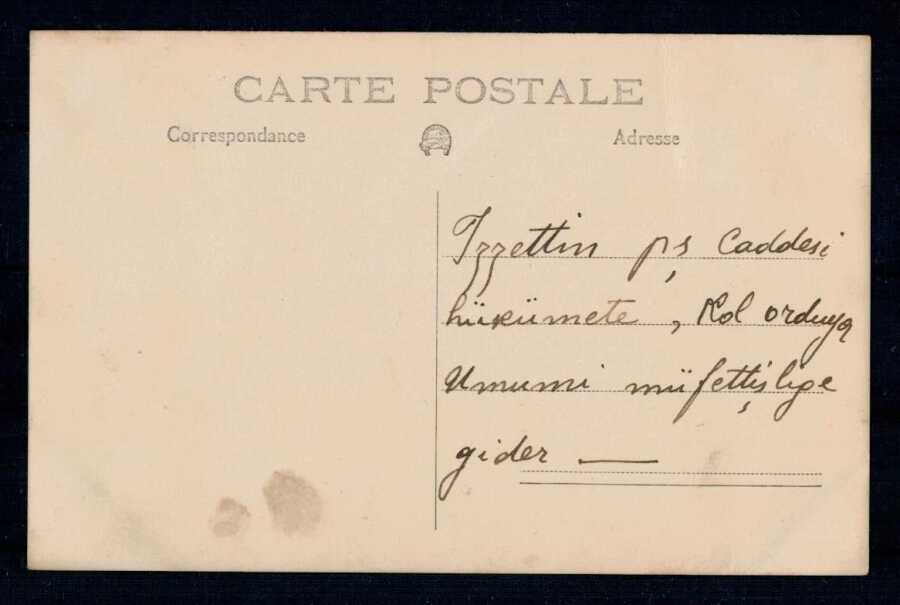 CARTE POSTALE
Correspondance
Adresse
Izzettin pş Caddesi
hükümete, Kol orduya
Umumi müfettişlige
gider —